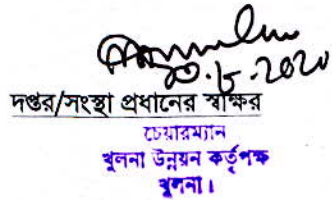 ২৩.৮.2020
দপ্তর/সংস্থা প্রধানের স্বাক্ষর
চেয়ারম্যান
খুলনা উন্নয়ন কর্তৃপক্ষ
খুলনা।